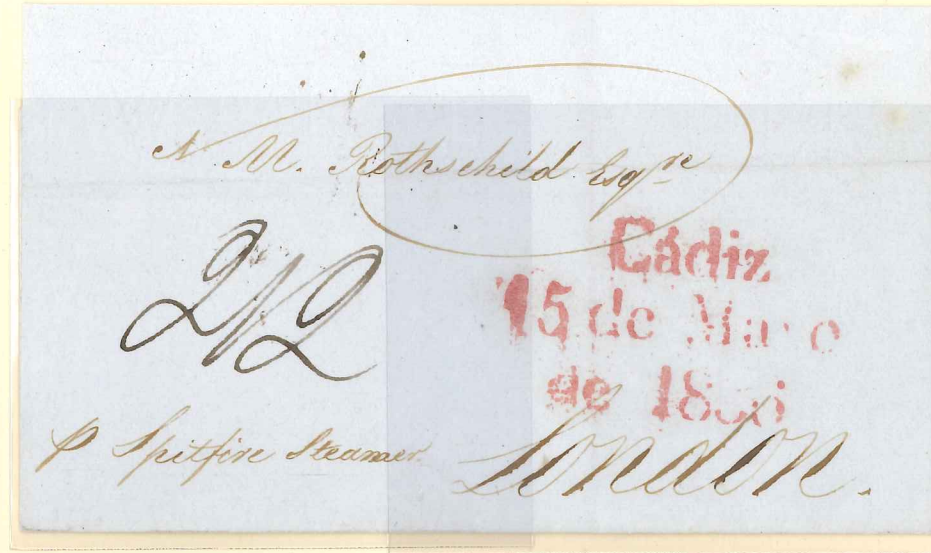 N. M. Rothschild Esqre
2/2
Cádiz
15 de Marzo
de 1836
p Spitfire Steamer
London.